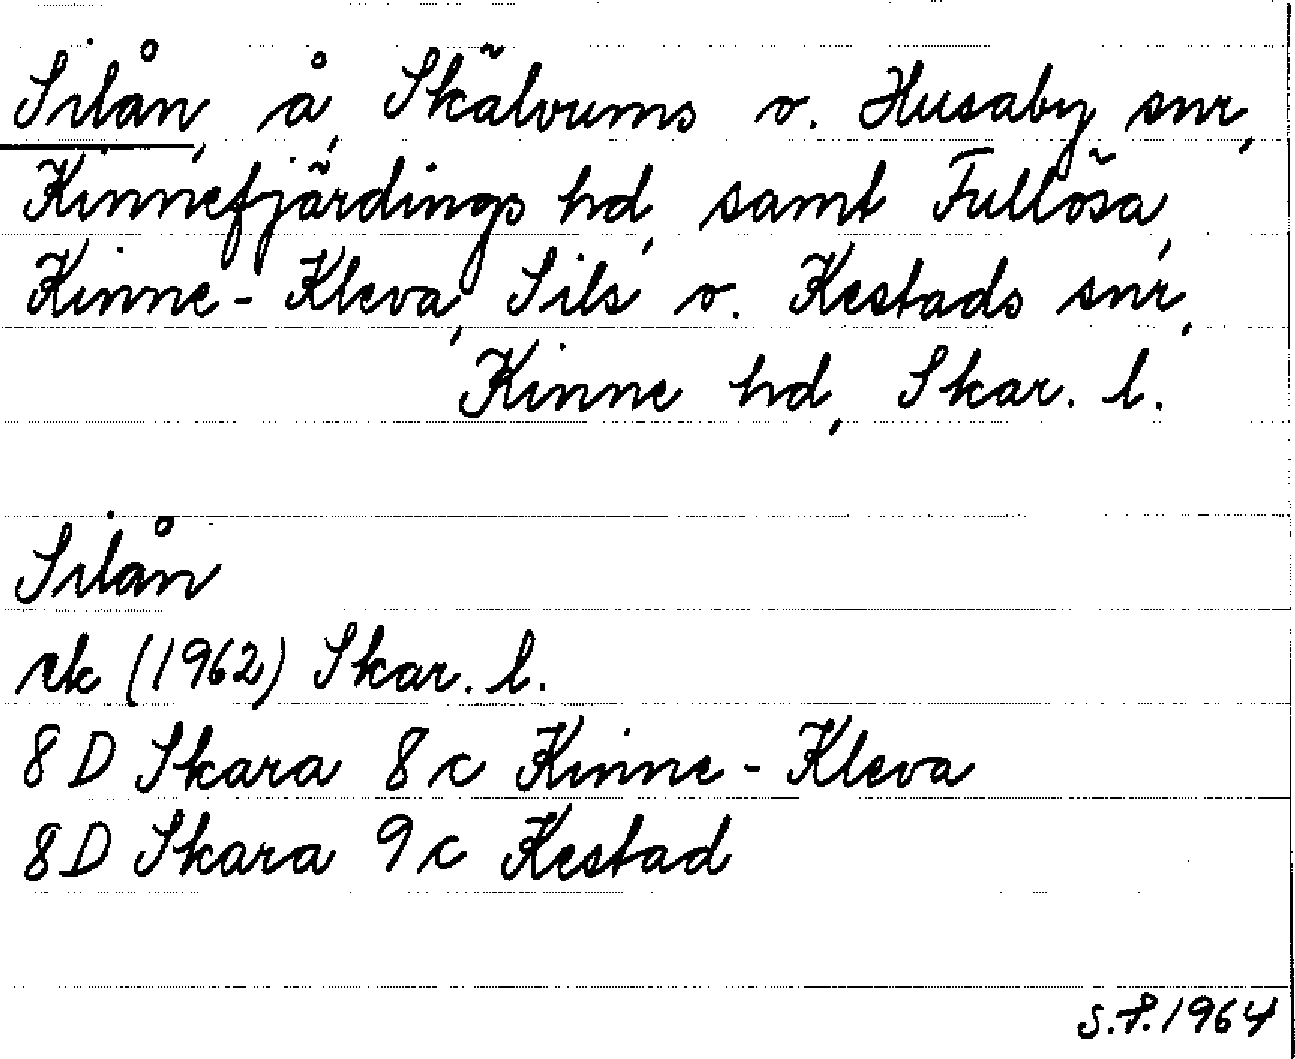 Silån, å, Skälvums o. Husaby snr,
Kinnefjärdings hd, samt Fullösa,
Kinne-Kleva, Sils o. Kestads snr,
Kinne hd, Skar. l.
Silån
ek (1962) Skar. l.
8 D Skara 8 c Kinne-Kleva
8 D Skara 9 c Kestad
S.F. 1964